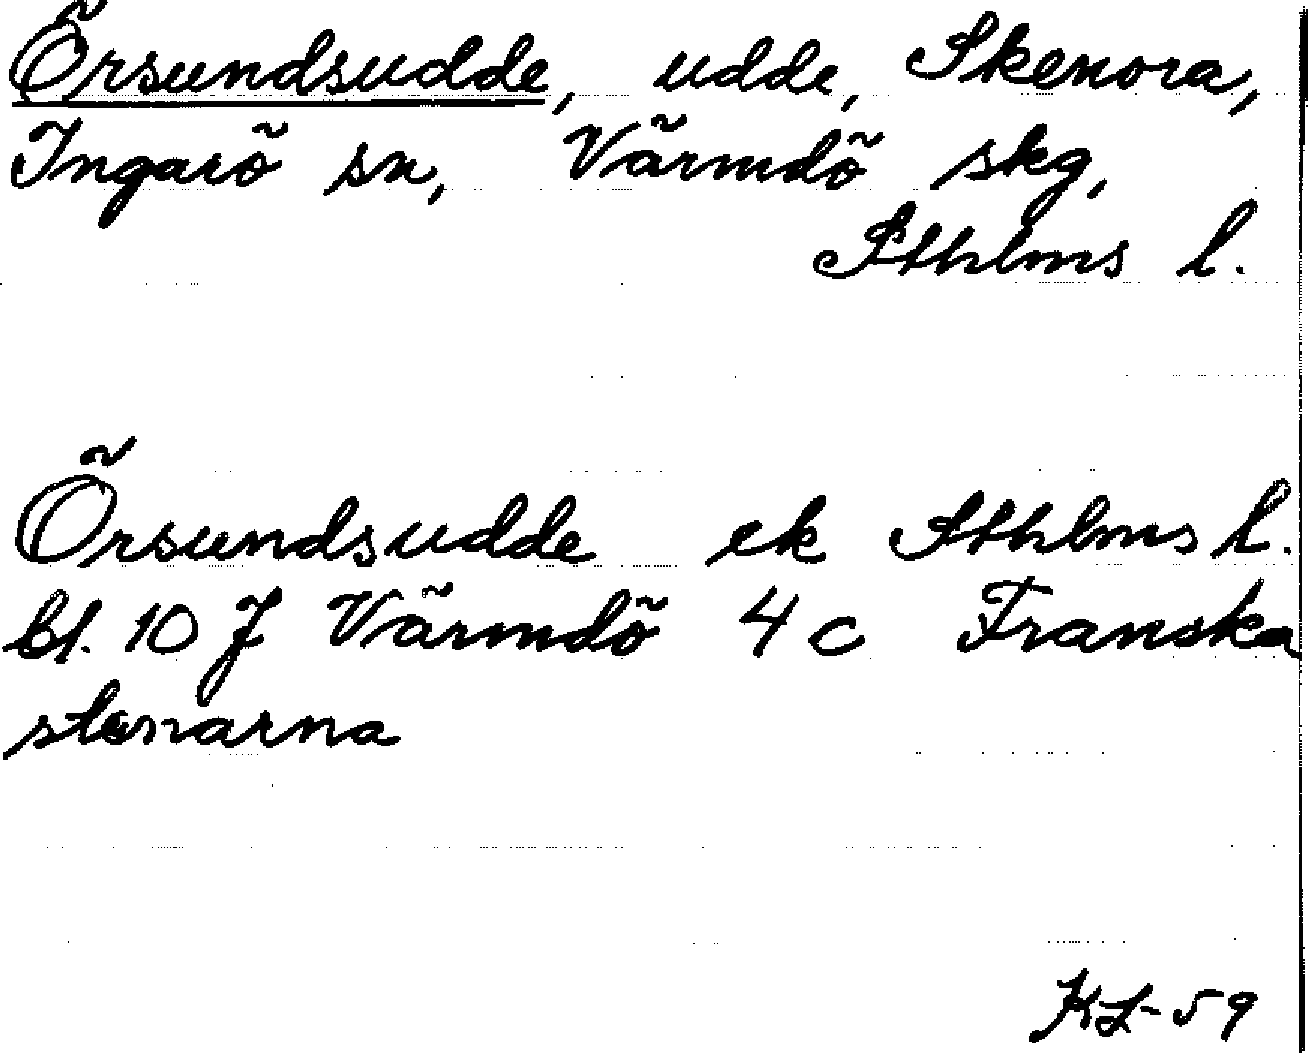 Örsundsudde, udde, Skenora,
Ingarö sn, Värmdö skg,
Sthlms l.
Örsundsudde ek Sthlms l.
bl. 10 J Värmdö 4 c Franska
stenarna
KL-59